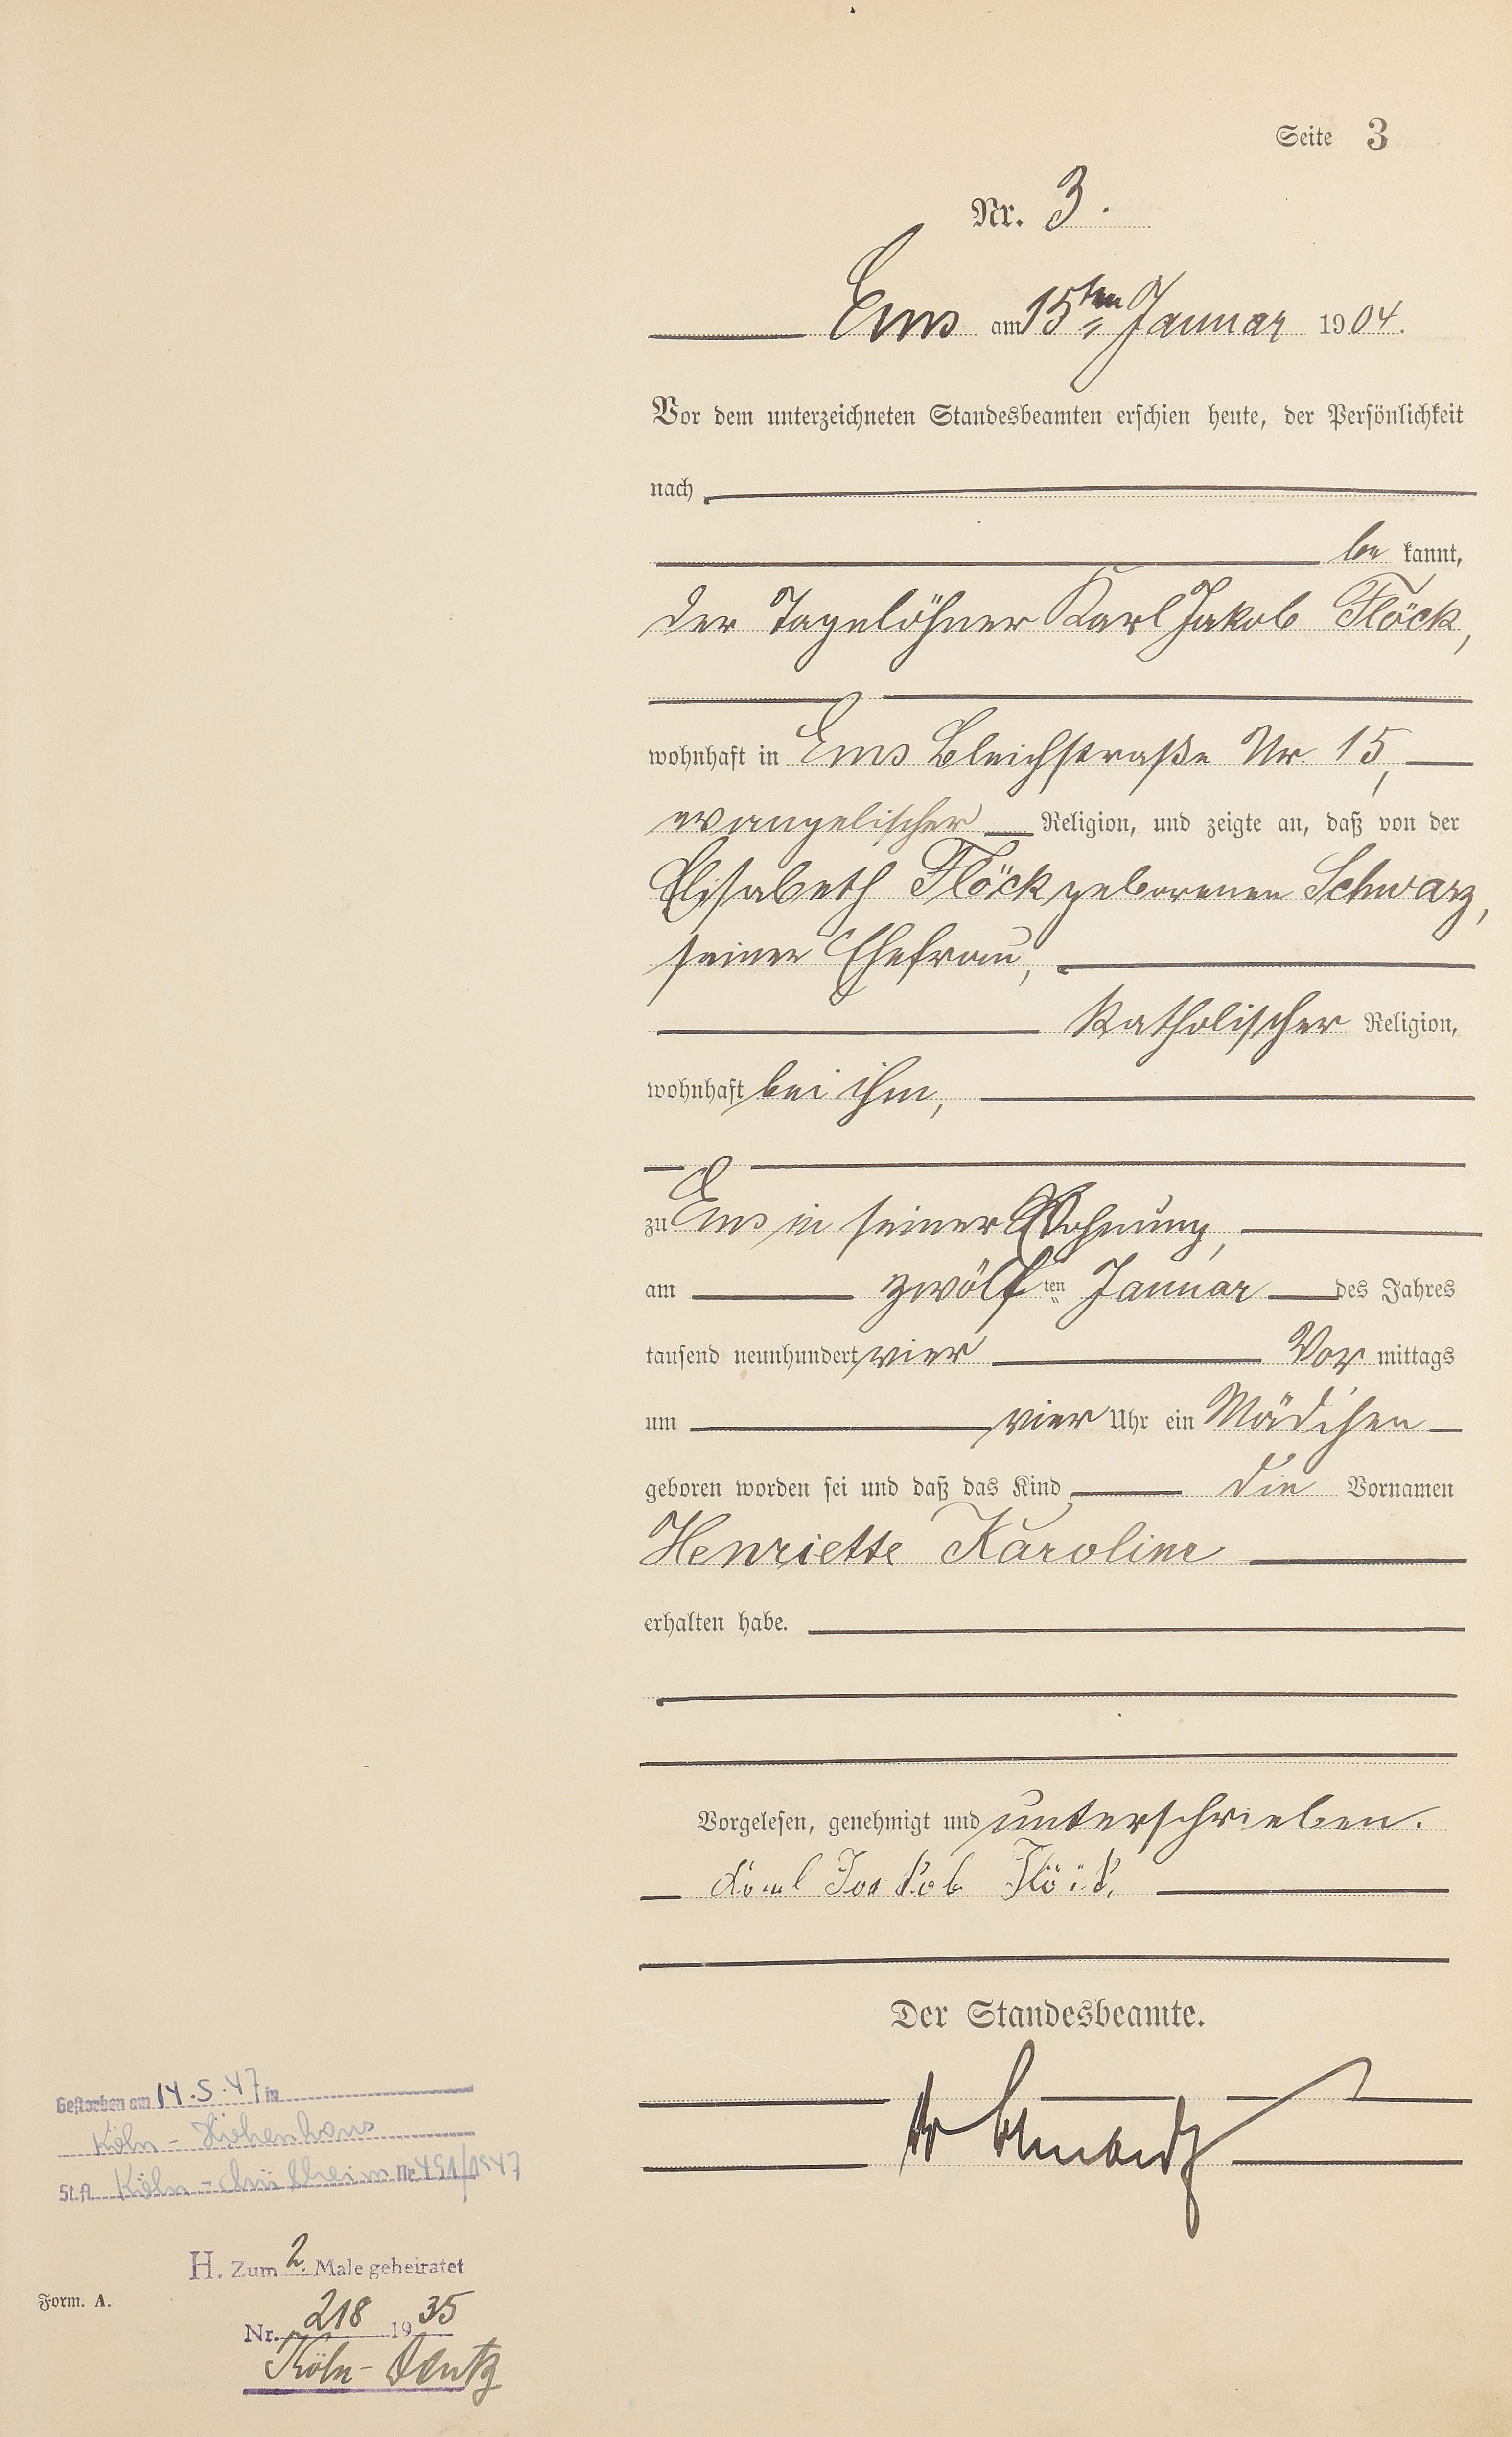 Seite 3
Nr. 3.
Ems am 15ten Januar 1904.
Vor dem unterzeichneten Standesbeamten erschien heute, der Persönlichkeit
nach
be kannt,
der Tagelöhner Karl Jakob Flöck,
wohnhaft in Ems Bleichstraße Nr. 15,
evangelischer Religion, und zeigte an, daß von der
Elisabeth Flöck geborenen Schwarz,
seiner Ehefrau,
katholischer Religion,
wohnhaft bei ihm,
zu Ems in seiner Wohnung,
am zwölf ten Januar des Jahres
tausend neunhundert vier Vor mittags
um vier Uhr ein Mädchen
geboren worden sei und daß das Kind die Vornamen
Henriette Karoline
erhalten habe.
Vorgelesen, genehmigt und unterschrieben.
Karl Jakob Flöck.
Der Standesbeamte.
Gestorben am 14.5.47 in
Köln - Höhenhaus
St.A. Köln - Mülheim Nr. 491/1947
H. Zum 2. Male geheiratet
Form. A.
Nr. 218 1935
Köln - Deutz